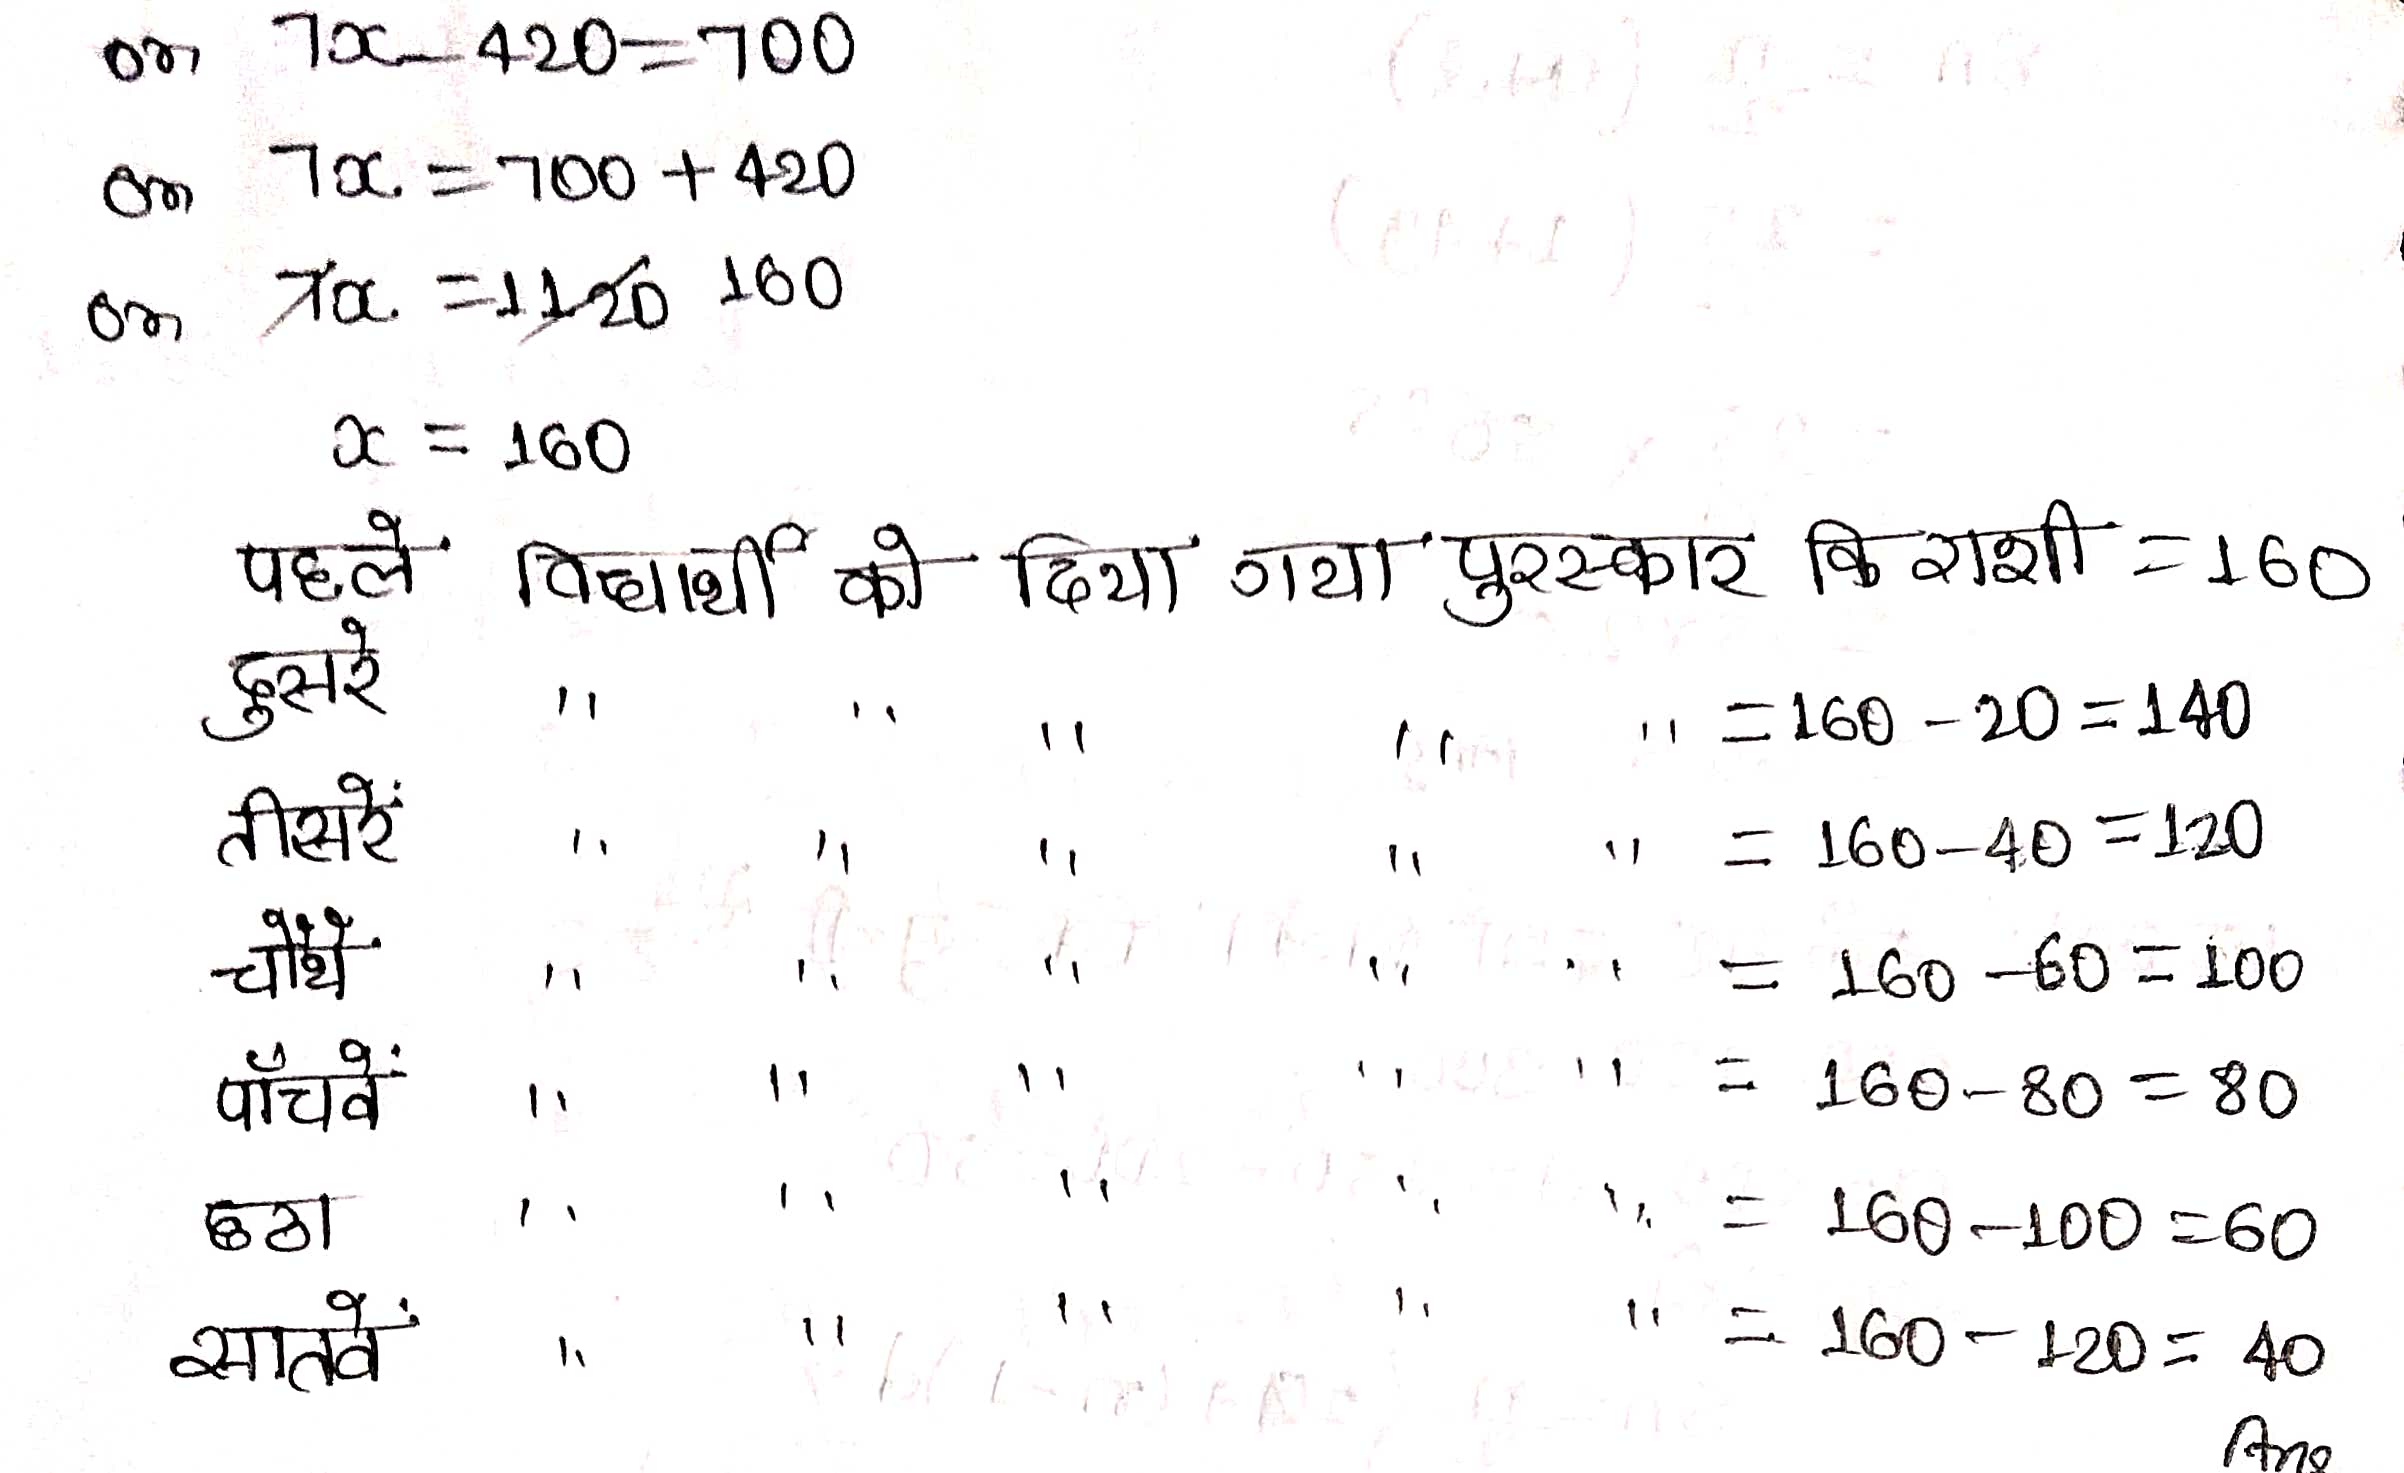 or 7x - 420 = 700
or 7x = 700 + 420
or 7x = 1120 160
x = 160
पहले विद्यार्थी को दिया गया पुरस्कार कि राशी = 160
दुसरे " " " " " = 160 - 20 = 140
तीसरें " " " " " = 160 - 40 = 120
चौथें " " " " " = 160 - 60 = 100
पाँचवें " " " " " = 160 - 80 = 80
छठा " " " " " = 160 - 100 = 60
सातवें " " " " " = 160 - 120 = 40
Ans